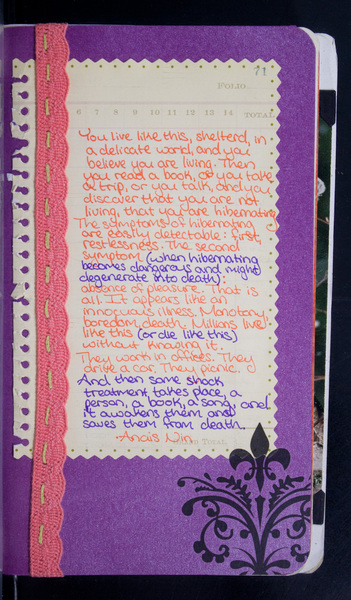 71
FOLIO
6 7 8 9 10 11 12 13 14 TOTAL
You live like this, shelterd, in
a delicate world, and you
believe you are living. Then
you read a book, or you take
a trip, or you talk, and you
discover that you are not
living, that you are hibernating.
The symptoms of hibernating
are easily detectable: first,
restlessness. The second
symptom (when hibernating
becomes dangerous and might
degenerate into death):
absence of pleasure. That is
all. It appears like an
innocuous illness. Monotony,
boredom, death. Millions live
like this (or die like this)
without knowing it.
They work in offices. They
drive a car. They picnic.
And then some shock
treatment takes place, a
person, a book, a song, and
it awakens them and
saves them from death.
-Anais Nin
TOTAL